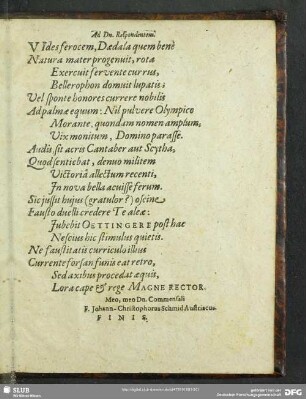 Ad Dn. Respondentem.
VIdes ferocem, Dædala quem benè
Natura mater progenuit, rotâ
Exercuit fervente currus,
Bellerophon domuit lupatis:
Vel sponte honores currere nobilis
Ad palmæ equum: Nil pulvere Olympico
Morante, quondam nomen amplum,
Vix monitum, Domino parasse.
Audis sit acris Cantaber aut Scytha,
Quod sentiebat, denuo militem
Victoriâ allectum recenti,
In nova bella acuisse ferum.
Sic jussit hujus (gratulor?) oscine
Fausto duelli credere Te aleæ:
Jubebit OETTINGERE post hac
Nescius hic stimulus quietis.
Ne faustitatis curriculo illius
Currente forsan funis eat retro,
Sed axibus procedat æquis,
Lora cape & rege MAGNE RECTOR.
Meo, meo Dn. Commensali
F. Johann-Christophorus Schmid Austriacus.
FINIS.
SLUB